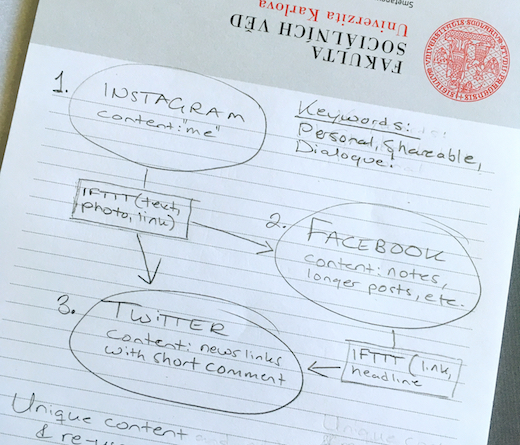 Smetanovo
Univerzita Karlova
SOCIÁLNÍCH VĚD
FAKULTA
1. INSTAGRAM
content: "me"
Keywords:
Personal, Shareable,
Dialogue.
IFTTT (text,
photo, link)
2. FACEBOOK
content: notes,
longer posts, etc.
3. TWITTER
content: news links
with short comment
IFTTT (link,
headline
Unique content